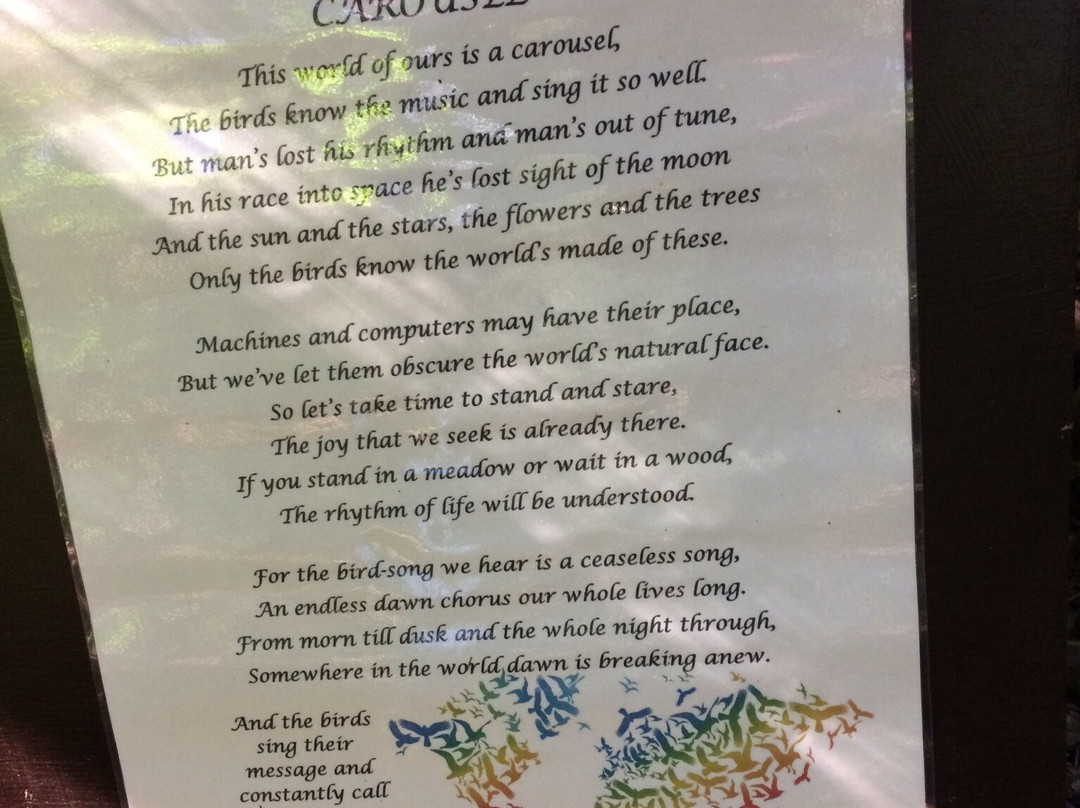 CAROUSEL
This world of ours is a carousel,
The birds know the music and sing it so well.
But man's lost his rhythm and man's out of tune,
In his race into space he's lost sight of the moon
And the sun and the stars, the flowers and the trees
Only the birds know the world's made of these.
Machines and computers may have their place,
But we've let them obscure the world's natural face.
So let's take time to stand and stare,
The joy that we seek is already there.
If you stand in a meadow or wait in a wood,
The rhythm of life will be understood.
For the bird-song we hear is a ceaseless song,
An endless dawn chorus our whole lives long.
From morn till dusk and the whole night through,
Somewhere in the world dawn is breaking anew.
And the birds
sing their
message and
constantly call